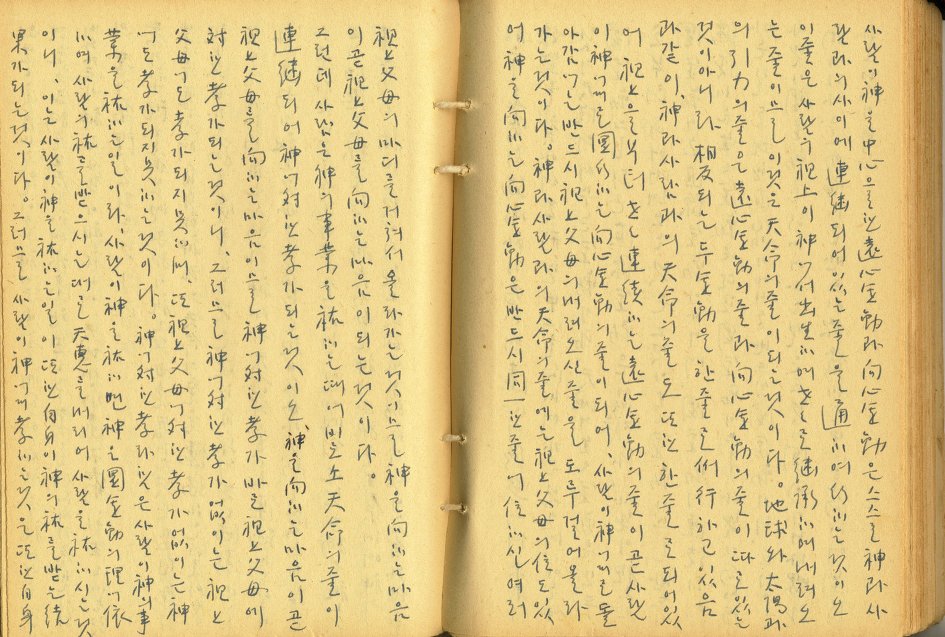 사람이神을中心으로한遠心金動과向心金動은스스로神과사
람과의사이에連繼되어있는줄을通하여行하는것이오
이줄은사람의祖上이神에서出生하며代를繼承하여내려오
는줄이므로이것은天命의줄이되는것이다。地球와太陽과
의引力의줄은遠心金動의줄과向心金動의줄이따로있는
것이아니라相反되는두金動을한줄로써行하고있음
과같이、神과사람과의天命의줄도또한한줄로되어있
어祖上으로부터代를連續하는遠心金動의줄이곧사람
이神에게로圓行하는向心金動의줄이되어、사람이神에게로돌
아감에는반드시祖上父母의내려오신줄을도루걸어올라
가는것이다。神과사람과의天命의줄에는祖上父母의位도있
어神을向하는向心金動은반드시同一한줄에位하신여러
祖上父母의마디를거쳐서올라가는것이므로神을向하는마음
이곧祖上父母를向하는마음이되는것이다。
그런데사람은神의事業을祐하는때에비로소天命의줄이
連繼되어神에對한孝가되는것이오、神을向하는마음이곧
祖上父母를向하는마음이므로神에對한孝가바로祖上父母에
對한孝가되는것이니、그러므로神에對한孝가없이는祖上
父母에도孝가되지못하며、또祖上父母에對한孝가없이는神
에도孝가되지못하는것이다。神에對한孝라한것은사람이神의事
業을祐하는일이라、사람이神을祐하면神은圓金動의理에依
하여사람의祐를받으시는대로天惠를내려어사람을祐하시는것
이니、이는사람이神을祐하는일이또한自身이神의祐를받는結
果가되는것이다。그러므로사람이神에게孝하는것은또한自身